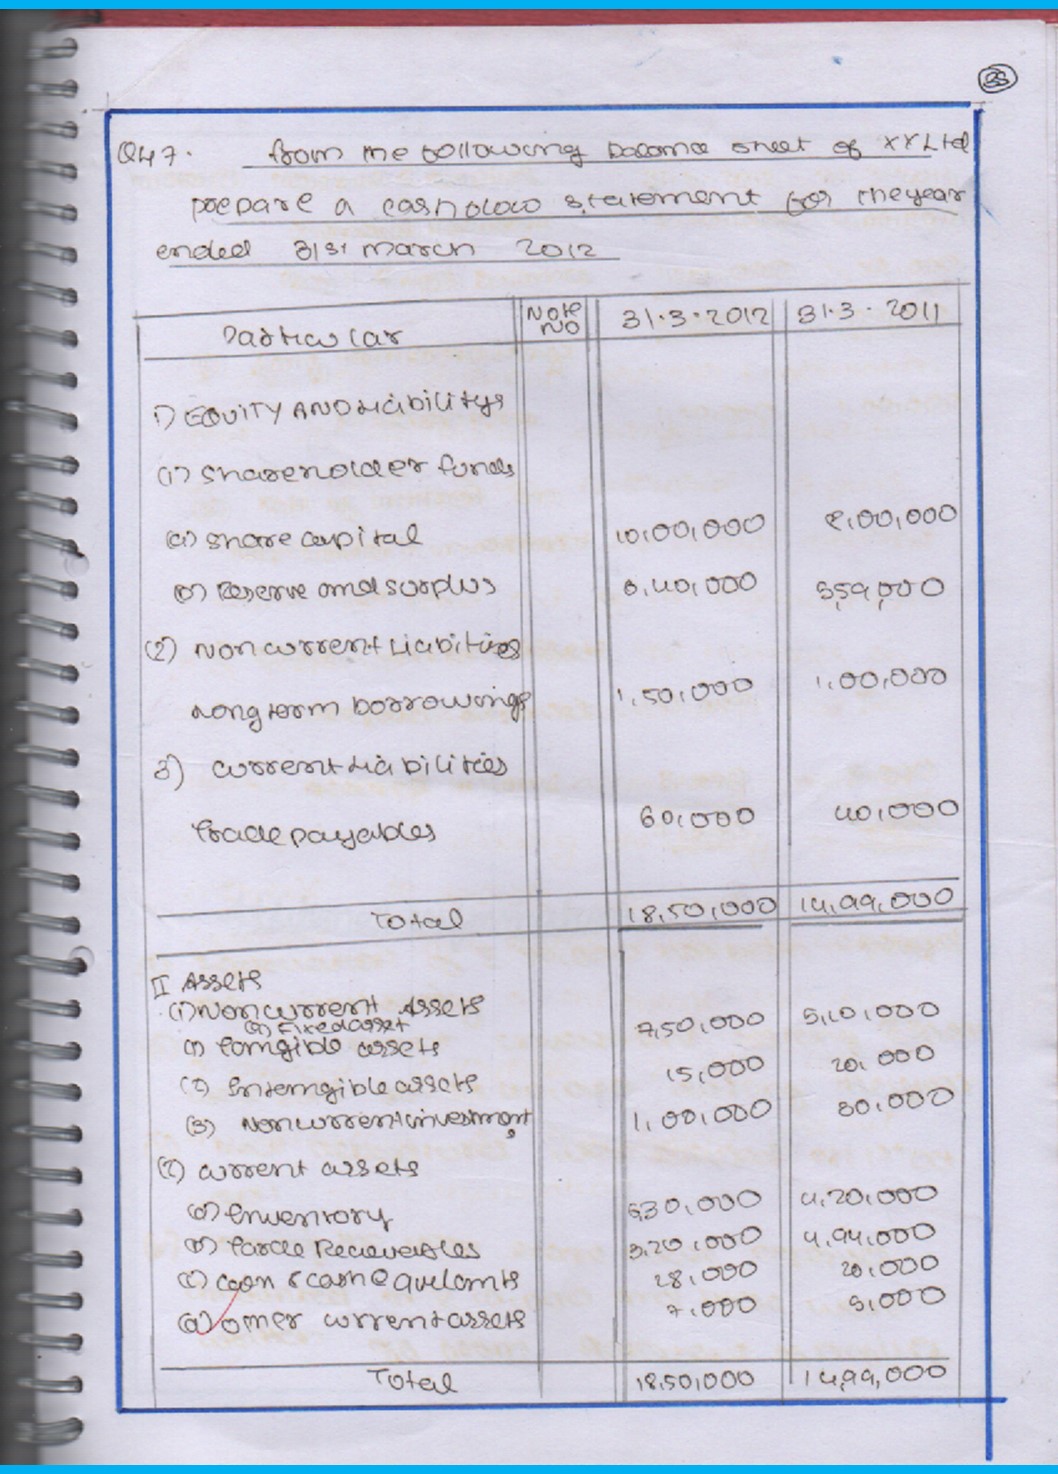 35
Q47. from the following balance sheet of XYLtd
prepare a cashflow statement for the year
ended 31st march 2012
Particular Note No 31.3.2012 31.3.2011
1) EQUITY AND Liabilitys
(1) Shareholder funds
(a) share capital 10,00,000 8,00,000
(b) Reserve and surplus 6,40,000 559,000
(2) Non current Liabilities
Long term borrowings 1,50,000 1,00,000
3) current Liabilities
Trade payables 60,000 40,000
Total 18,50,000 14,99,000
II Assets
(1) Non current Assets
(a) Fixed asset
(1) Tangible assets 7,50,000 5,10,000
(2) Intengible assets 15,000 20,000
(3) Non current investment 1,00,000 30,000
(2) current assets
(a) Inventory 6,30,000 4,20,000
(b) Tarde Recieverbles 3,20,000 4,94,000
(c) Cash & cash equilamts 28,000 20,000
(d) other current assets 7,000 5,000
Total 18,50,000 14,99,000